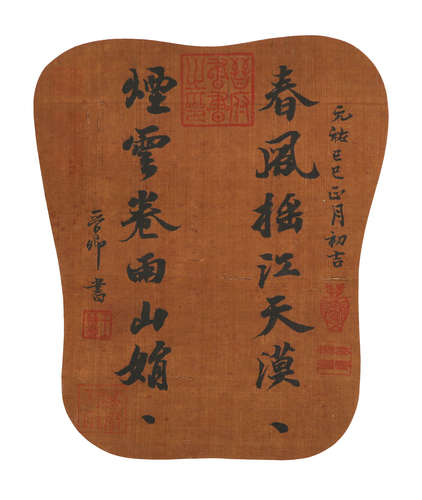 元祐己巳正月初吉
春風搖江天漠、
煙雲卷雨山娟、
晉卿書